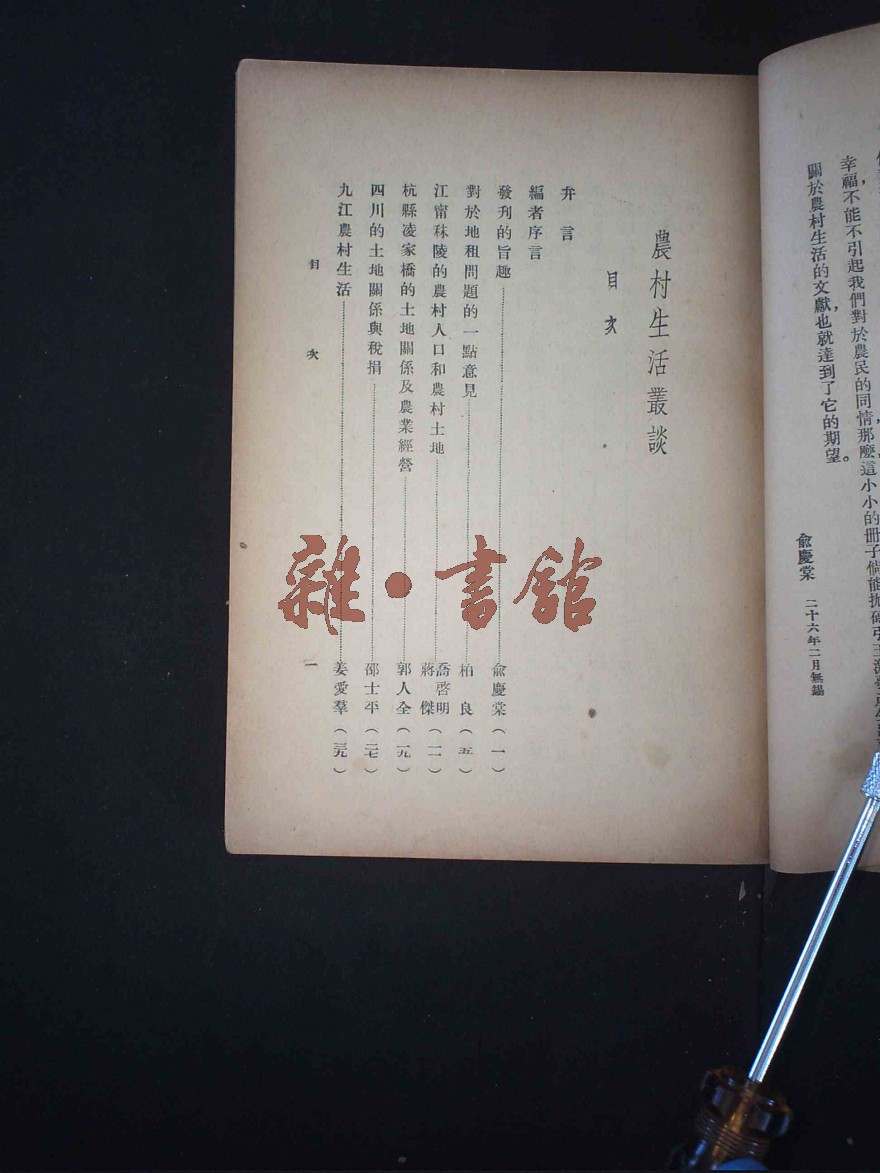 幸福,不能不引起我們對於農民的同情,那麽這小小的冊子,倘能拋磚引玉
關於農村生活的文獻,也就達到了它的期望。
俞慶棠 二十六年二月無錫
農村生活叢談
目次
弁言
編者序言
發刊的旨趣 俞慶棠(一)
對於地租問題的一點意見 柏良(五)
江甯秣陵的農村人口和農村土地 喬啓明 蔣傑(一一)
杭縣凌家橋的土地關係及農業經營 郭人全(一九)
四川的土地關係與稅捐 邵士平(二七)
九江農村生活 姜愛羣(三九)
目次 一
雜·書館